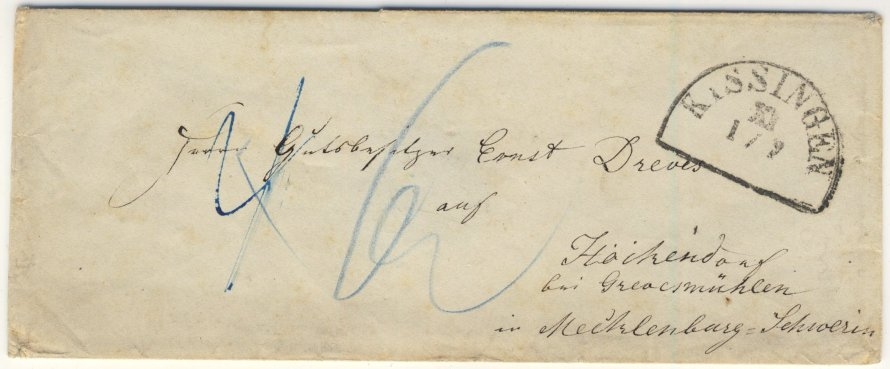 KISSINGEN
17 9
Herrn Gutsbesitzer Ernst Dreves
auf
Hoikendorf
bei Grevesmühlen
in Mecklenburg=Schwerin
6